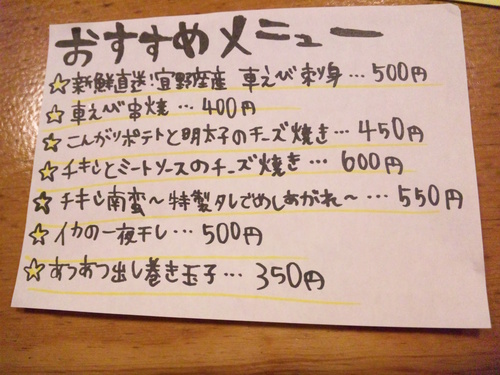 おすすめメニュー
☆新鮮直送!宜野座産 車えび刺り身…500円
☆車えび串焼…400円
☆こんがりポテトと明太子のチーズ焼き…450円
☆チキンとミートソースのチーズ焼き…600円
☆チキン南蛮～特製タレでめしあがれ～…550円
☆イカの一夜干し…500円
☆あつあつ出し巻き玉子…350円